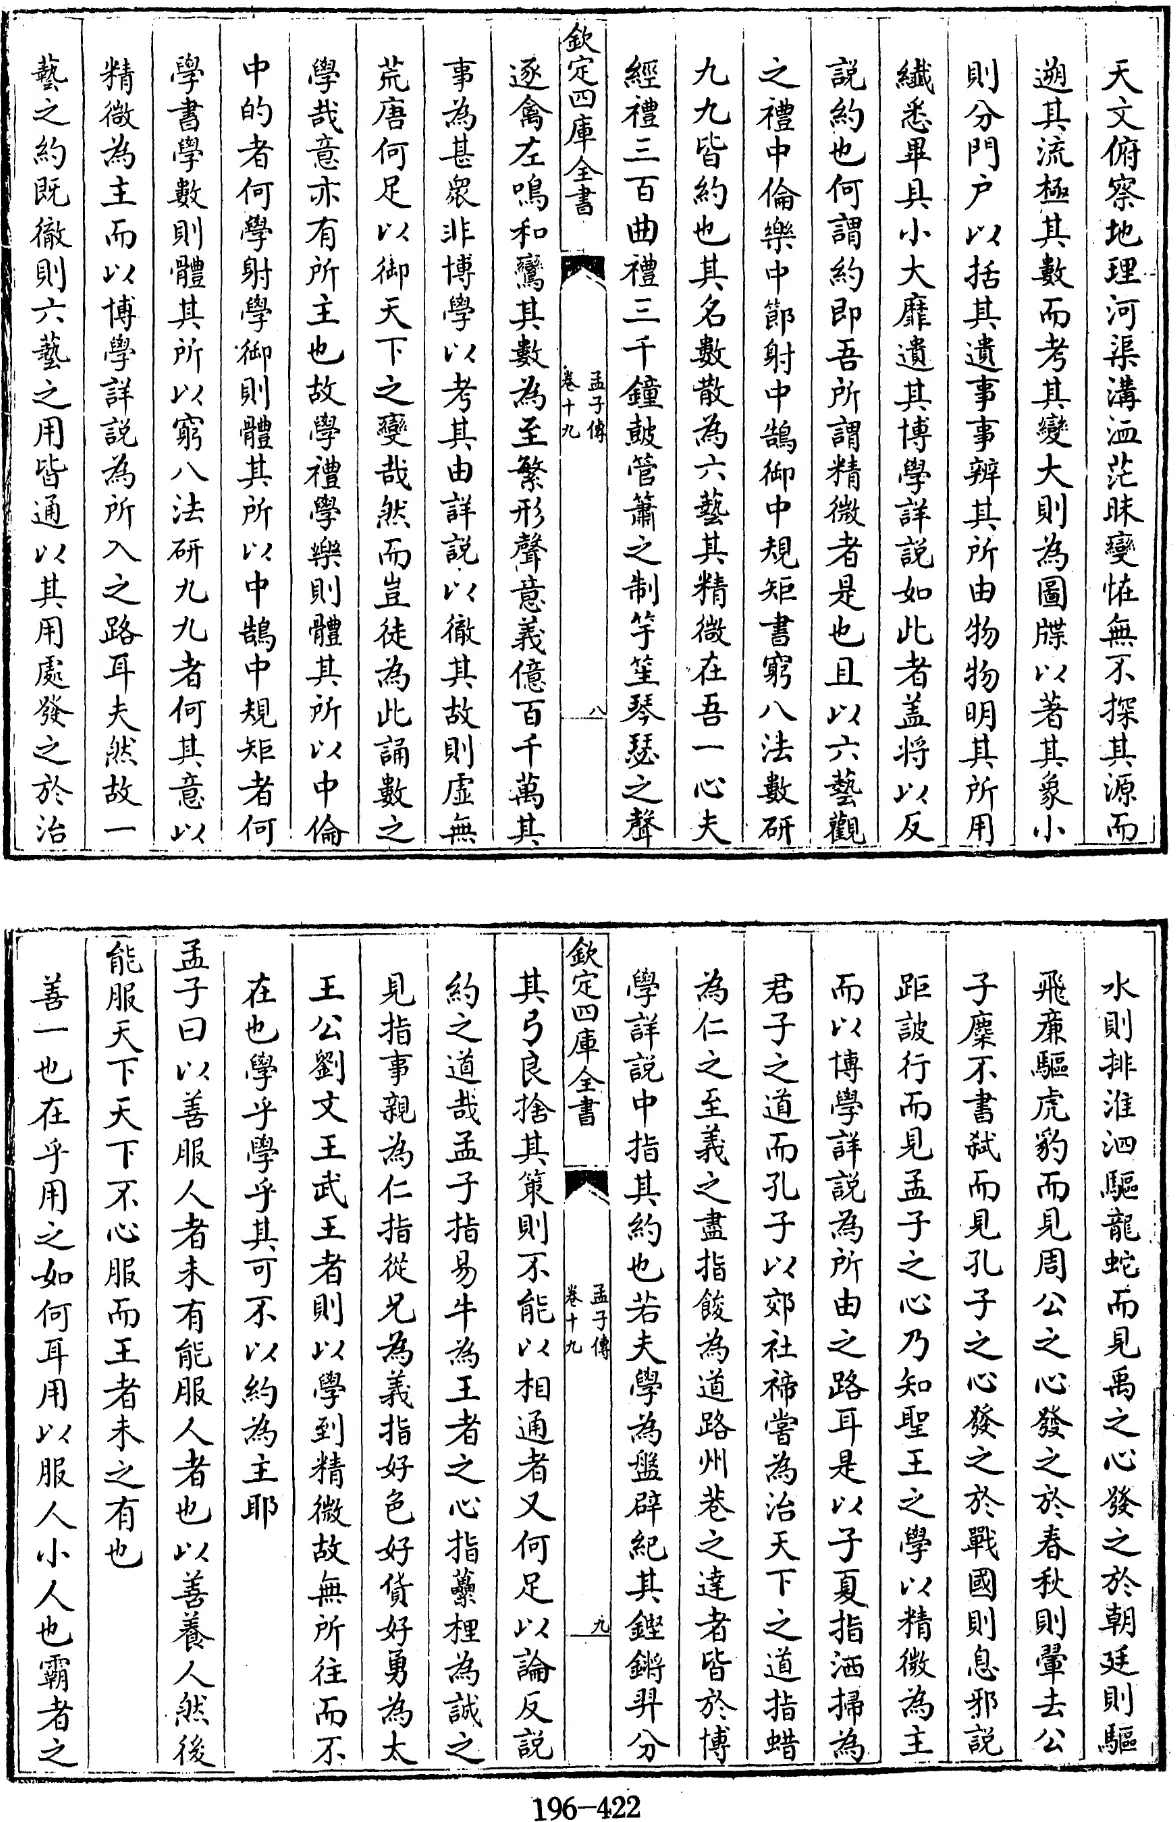 天文俯察地理河渠溝洫茫昧變怪無不探其源而
遡其流極其數而考其變大則為圖牒以著其象小
則分門户以括其遺事事辨其所由物物明其所用
纎悉畢具小大靡遺其博學詳説如此者盖将以反
説約也何謂約即吾所謂精微者是也且以六藝觀
之禮中倫樂中節射中鵠御中規矩書窮八法數研
九九皆約也其名數散為六藝其精微在吾一心夫
經禮三百曲禮三千鐘鼓管簫之制竽笙琴瑟之聲
欽定四庫全書
孟子傳
卷十九
八
逐禽左鳴和鸞其數為至繁形聲意義億百千萬其
事為甚衆非博學以考其由詳説以徹其故則虚無
荒唐何足以御天下之變哉然而豈徒為此誦數之
學哉意亦有所主也故學禮學樂則體其所以中倫
中的者何學射學御則體其所以中鵠中規矩者何
學書學數則體其所以窮八法研九九者何其意以
精微為主而以博學詳説為所入之路耳夫然故一
藝之約既徹則六藝之用皆通以其用處發之於治
水則排淮泗驅龍蛇而見禹之心發之於朝廷則驅
飛廉驅虎豹而見周公之心發之於春秋則翬去公
子麋不書弑而見孔子之心發之於戰國則息邪説
距詖行而見孟子之心乃知聖王之學以精微為主
而以博學詳説為所由之路耳是以子夏指洒掃為
君子之道而孔子以郊社禘嘗為治天下之道指蜡
為仁之至義之盡指餕為道路州巷之達者皆於博
學詳説中指其約也若夫學為盤辟紀其鏗鏘羿分
欽定四庫全書
孟子傳
卷十九
九
其弓良捨其策則不能以相通者又何足以論反説
約之道哉孟子指易牛為王者之心指虆梩為誠之
見指事親為仁指從兄為義指好色好貨好勇為太
王公劉文王武王者則以學到精微故無所往而不
在也學乎學乎其可不以約為主耶
孟子曰以善服人者未有能服人者也以善養人然後
能服天下天下不心服而王者未之有也
善一也在乎用之如何耳用以服人小人也霸者之
196-422